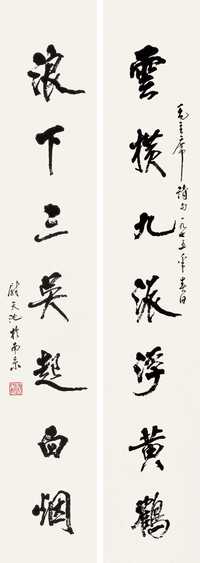 雲橫九派浮黃鶴
毛主席詩句一九七五年春日
浪下三吳起白烟
天池於南京